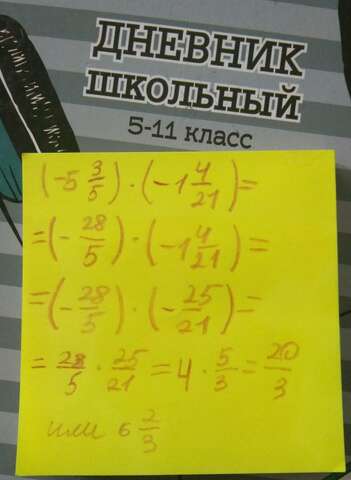 ДНЕВНИК
ШКОЛЬНЫЙ
5-11 класс
(-5 3/5) · (-1 4/21) =
= (-28/5) · (-1 4/21) =
= (-28/5) · (-25/21) =
= 28/5 · 25/21 = 4 · 5/3 = 20/3
или 6 2/3